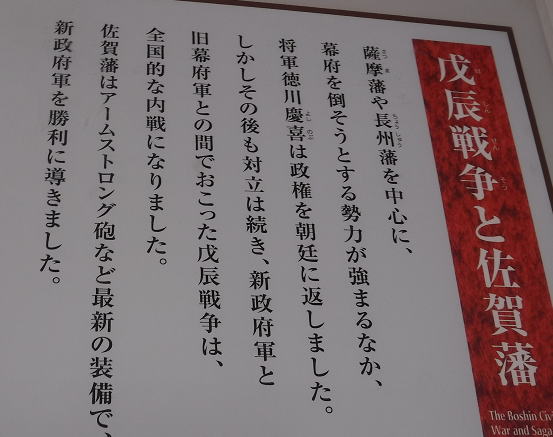 戊辰戦争と佐賀藩
The Boshin Civi
War and Saga
薩摩藩や長州藩を中心に、
幕府を倒そうとする勢力が強まるなか、
将軍徳川慶喜は政権を朝廷に返しました。
しかしその後も対立は続き、新政府軍と
旧幕府軍との間でおこった戊辰戦争は、
全国的な内戦になりました。
佐賀藩はアームストロング砲など最新の装備で、
新政府軍を勝利に導きました。